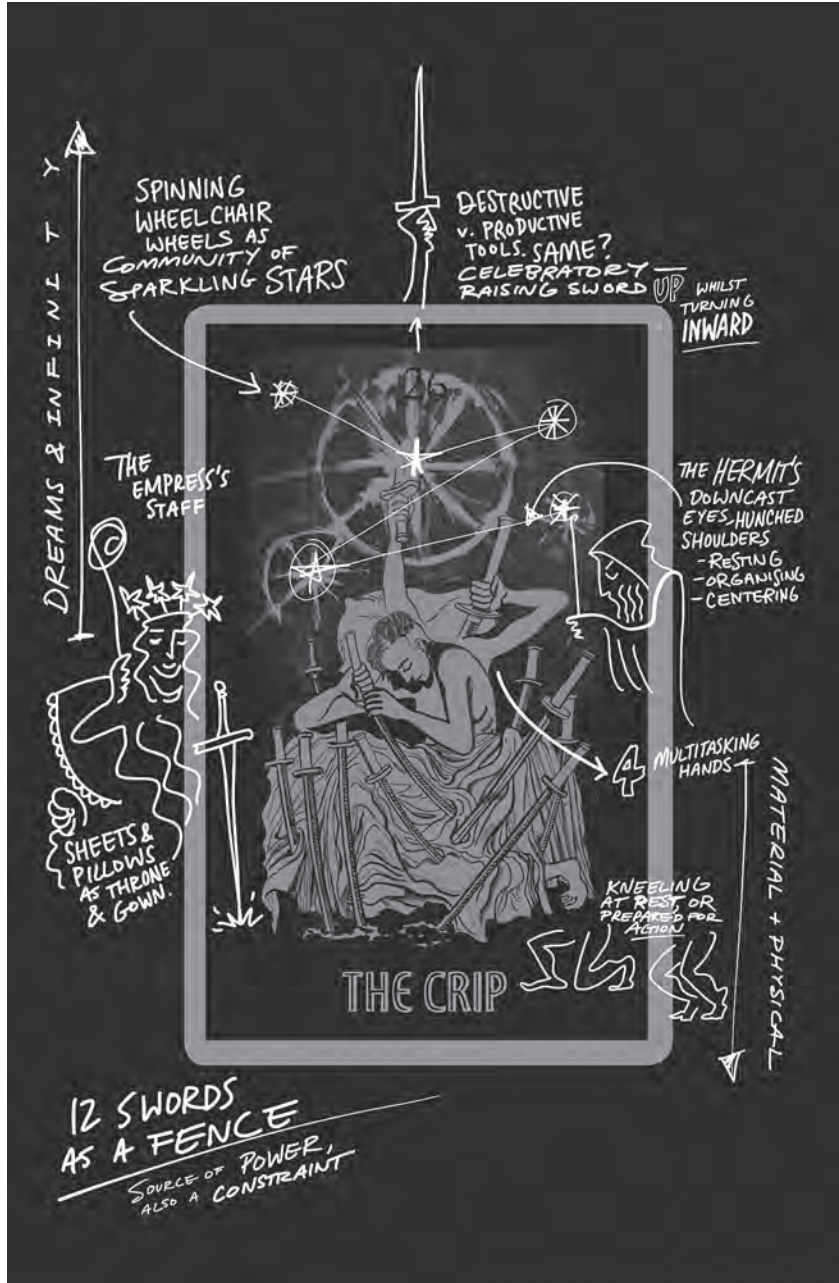 DREAMS & INFINITY
SPINNING
WHEELCHAIR
WHEELS AS
COMMUNITY OF
SPARKLING STARS
DESTRUCTIVE
v. PRODUCTIVE
TOOLS. SAME?
CELEBRATORY
RAISING SWORD
UP WHILST
TURNING
INWARD
THE
EMPRESS'S
STAFF
THE HERMIT'S
DOWNCAST
EYES, HUNCHED
SHOULDERS
- RESTING
- ORGANISING
- CENTERING
4 MULTITASKING
HANDS
SHEETS &
PILLOWS
AS THRONE
& GOWN.
KNEELING
AT REST, OR
PREPARED FOR
ACTION
MATERIAL + PHYSICAL
THE CRIP
12 SWORDS
AS A FENCE
SOURCE OF POWER,
ALSO A CONSTRAINT